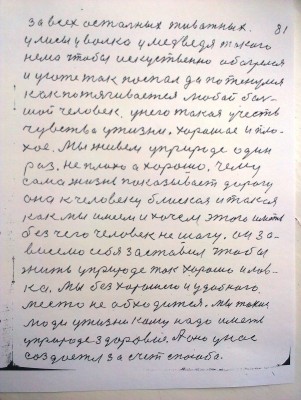 81
за всех остальных животных.
у лисы у волка у медведя такого
нема чтобы искуственно обогрелся
и уюте так поспал да потянулся
как потягивается любой боль-
шой человек. у него такая участь
чувства у жизни. хорошае и пло-
хое. Мы живем у природе один
раз. не плохо а хорошо. чему
сама жизнь показывает дорогу
она к человеку близкая и такая
как мы имеем и хочем этого иметь
без чего человек не шагу. он за-
висемо себя заставил чтобы
жить у природе так хорошо и лов-
ко. Мы без хорошего и удобного
место не обходится. мы такие
люди у жизни кому надо иметь
у природе здоровие. А оно у нас
создается за счет способа.